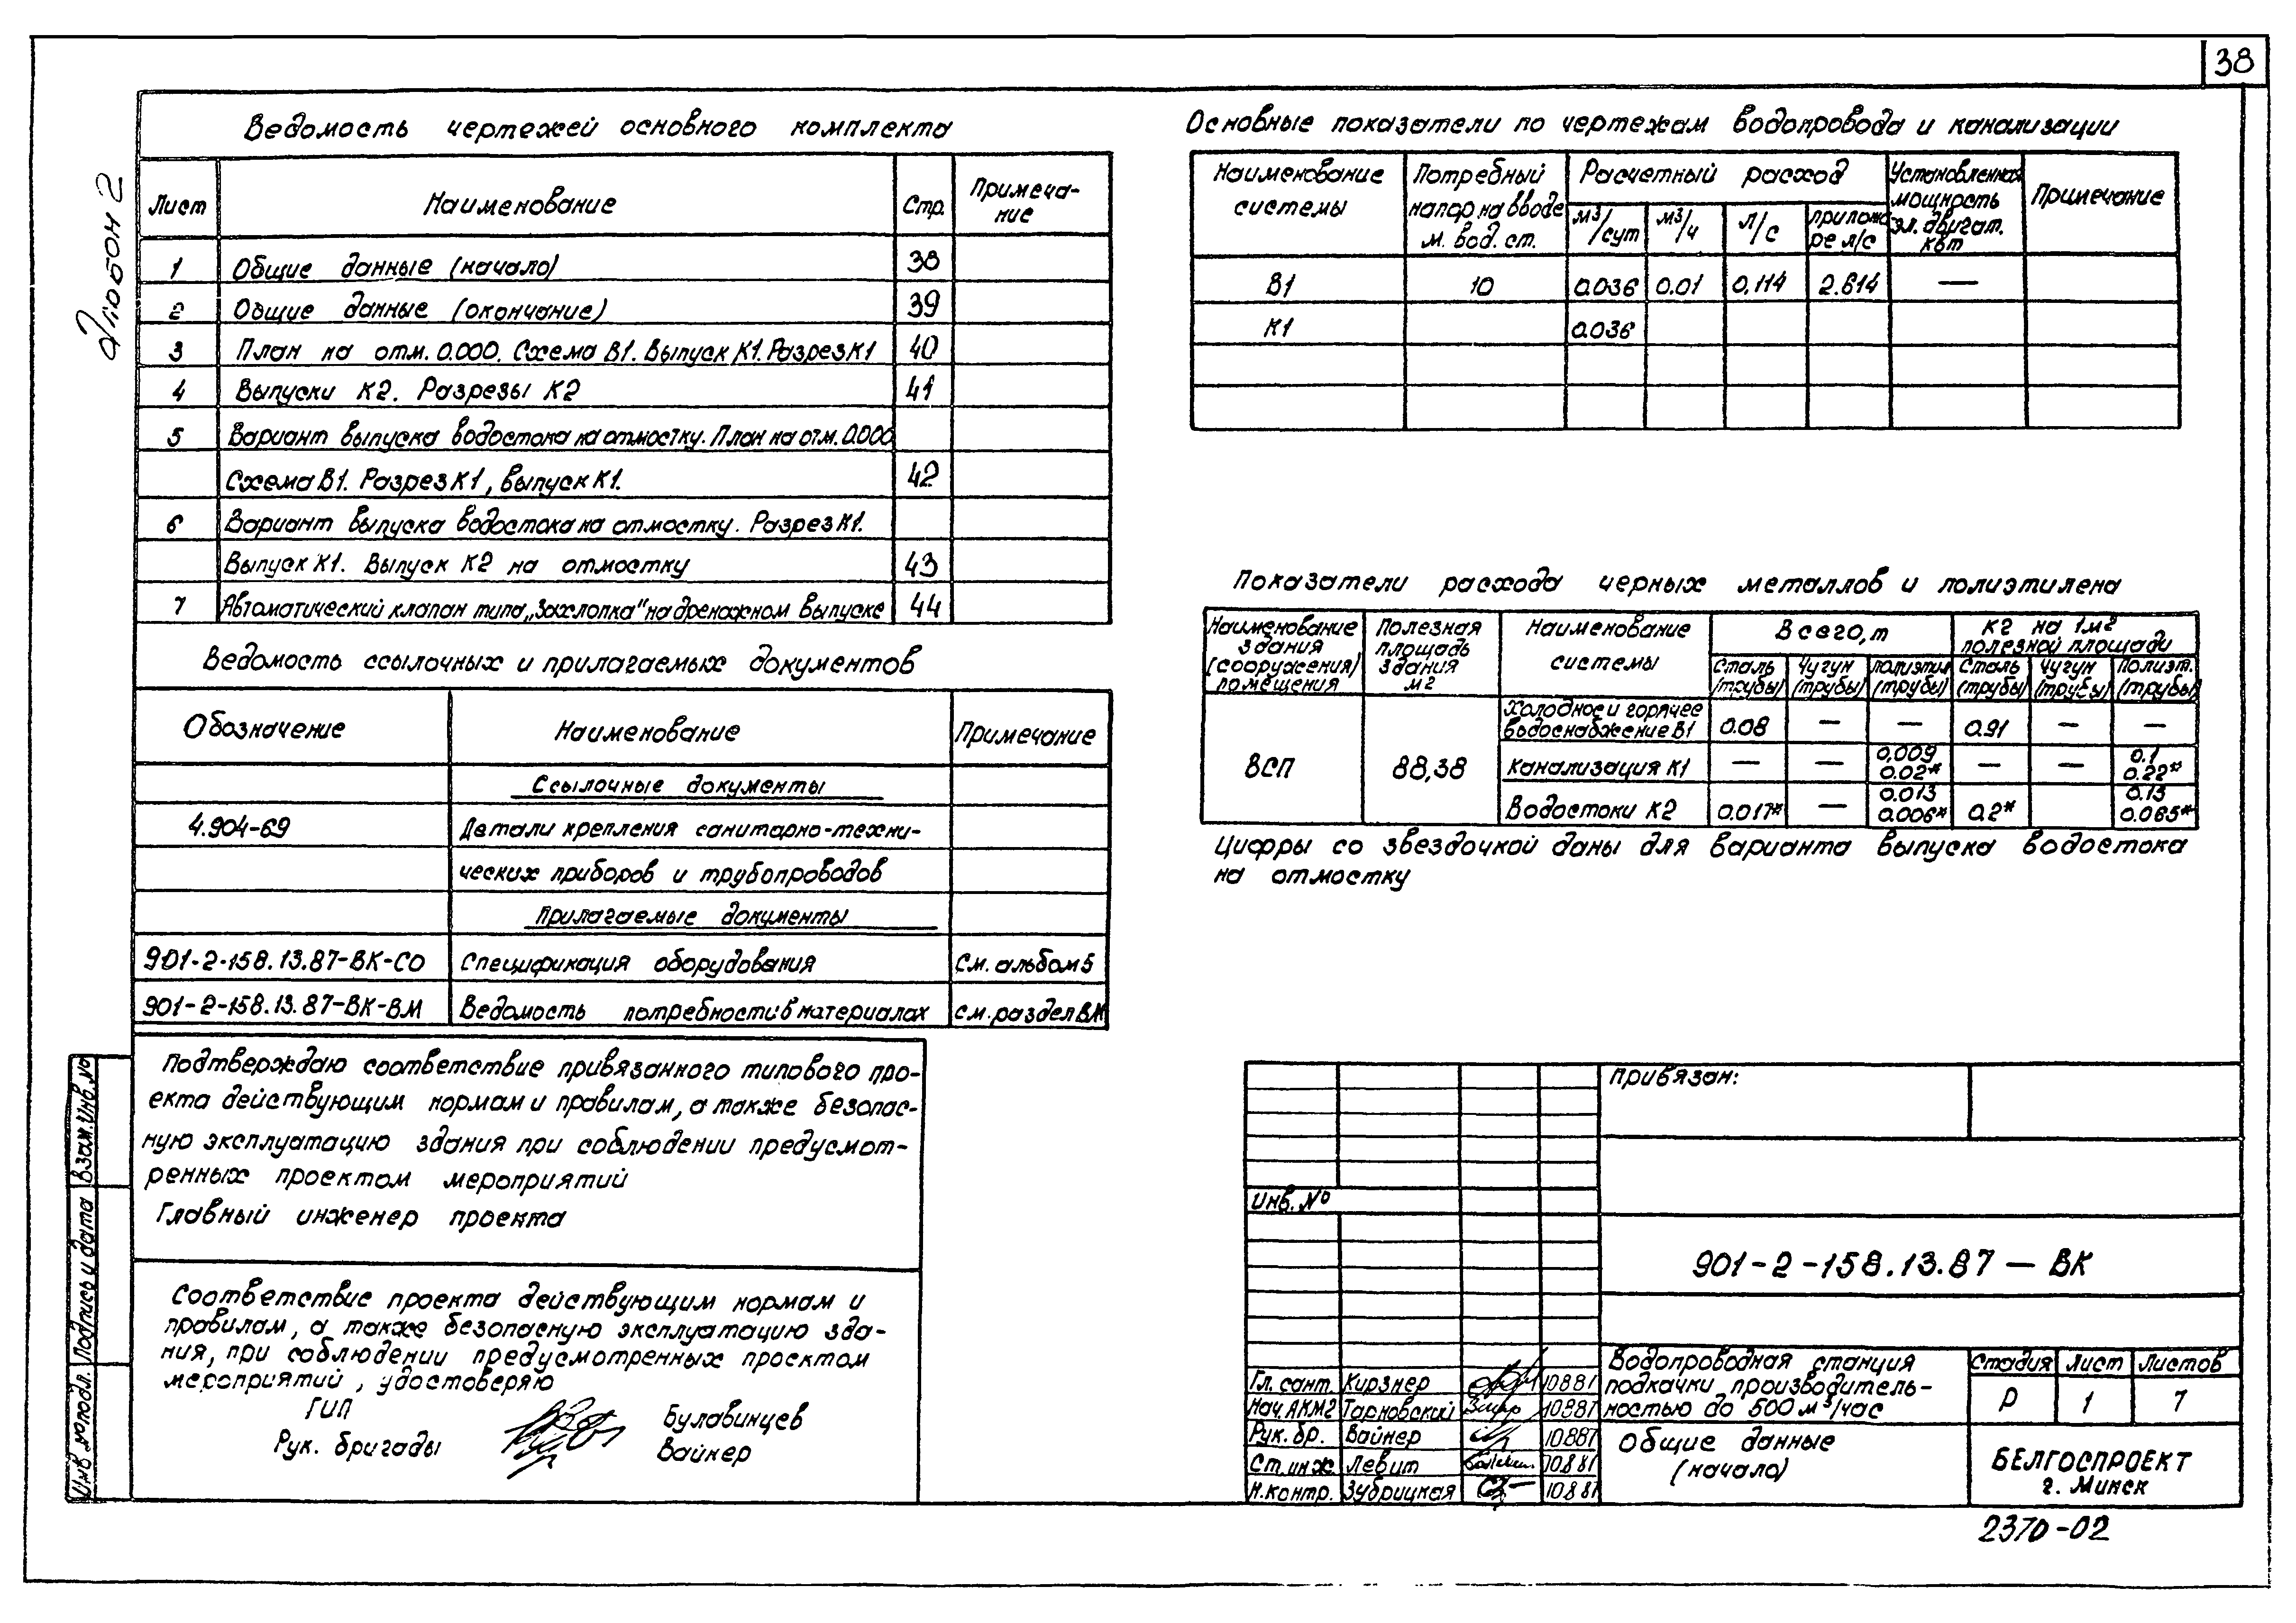 38
Альбом 2
Ведомость чертежей основного комплекта
Лист Наименование Стр. Примеча-
ние
1 Общие данные (начало) 38
2 Общие данные (окончание) 39
3 План на отм. 0.000. Схема В1. Выпуск К1. Разрез К1 40
4 Выпуски К2. Разрезы К2 41
5 Вариант выпуска водостока на отмостку. План на отм. 0.000
Схема В1. Разрез К1, выпуск К1. 42
6 Вариант выпуска водостока на отмостку. Разрез К1.
Выпуск К1. Выпуск К2 на отмостку 43
7 Автоматический клапан типа „Захлопка" на дренажном выпуске 44
Ведомость ссылочных и прилагаемых документов
Обозначение Наименование Примечание
Ссылочные документы
4.904-69 Детали крепления санитарно-техни-
ческих приборов и трубопроводов
Прилагаемые документы
901-2-158.13.87-ВК-СО Спецификация оборудования См. альбом 5
901-2-158.13.87-ВК-ВМ Ведомость потребности в материалах см. раздел ВМ
Подтверждаю соответствие привязанного типового про-
екта действующим нормам и правилам, а также безопас-
ную эксплуатацию здания при соблюдении предусмот-
ренных проектом мероприятий
Главный инженер проекта
Соответствие проекта действующим нормам и
правилам, а также безопасную эксплуатацию зда-
ния, при соблюдении предусмотренных проектом
мероприятий, удостоверяю
ГИП Булавинцев
Рук. бригады Вайнер
Взам. Инв. №
Подпись и дата
Инв. № подл.
Основные показатели по чертежам водопровода и канализации
Наименование
системы
Потребный
напор на вводе
м. вод. ст.
Расчетный расход
м3/сут м3/ч л/с при пожа-
ре л/с
Установленная
мощность
эл. двигат.
квт
Примечание
В1 10 0.036 0.01 0.114 2.614 —
К1 0.036
Показатели расхода черных металлов и полиэтилена
Наименование
здания
(сооружения)
помещения
Полезная
площадь
здания
м2
Наименование
системы
Всего, т
Сталь (трубы) Чугун (трубы) полиэтил. (трубы)
кг на 1м2
полезной площади
Сталь (трубы) Чугун (трубы) Полиэт. (трубы)
ВСП 88,38
Холодное и горячее
водоснабжение В1 0.08 — — 0.91 — —
Канализация К1 — — 0,009 0.02* — — 0.1 0.22*
Водостоки К2 0.017* — 0.013 0.006* 0.2* 0.15 0.065*
Цифры со звездочкой даны для варианта выпуска водостока
на отмостку
Привязан:
Инв. №
901-2-158.13.87 — ВК
Гл. сант. Кирзнер 10.87
Нач. АКМ2 Тарновский 10.87
Рук. бр. Вайнер 10.87
Ст. инж. Левит 10.87
Н. контр. Зубрицкая 10.87
Водопроводная станция
подкачки производитель-
ностью до 500 м3/час
Стадия Лист Листов
Р 1 7
Общие данные
(начало)
БЕЛГОСПРОЕКТ
г. Минск
2370-02